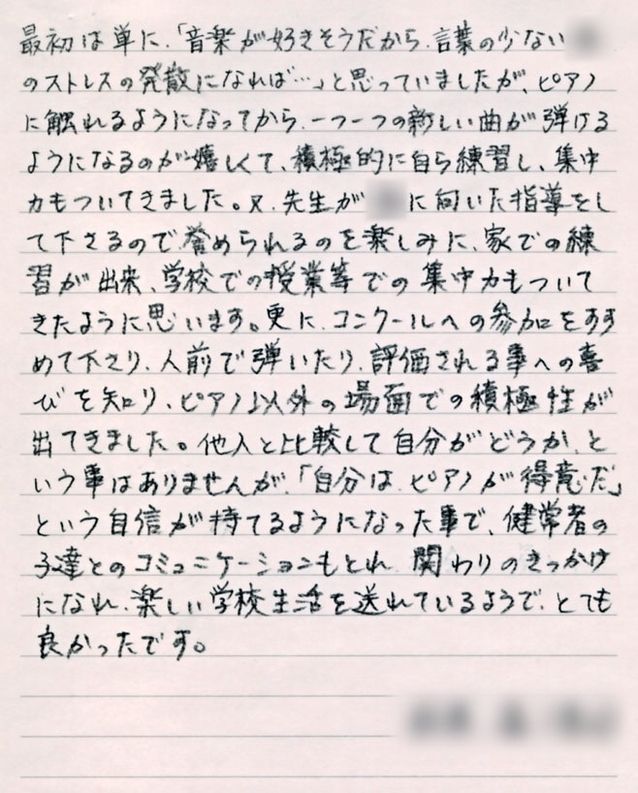 最初は単に、「音楽が好きそうだから、言葉の少ない
のストレスの発散になれば…」と思っていましたが、ピアノ
に触れるようになってから、一つ一つの新しい曲が弾ける
ようになるのが嬉しくて、積極的に自ら練習し、集中
力もついてきました。又、先生が に向いた指導をし
て下さるので、誉められるのを楽しみに、家での練
習が出来、学校での授業等での集中力もついて
きたように思います。更に、コンクールへの参加をすす
めて下さり、人前で弾いたり、評価される事への喜
びを知り、ピアノ以外の場面での積極性が
出てきました。他人と比較して自分がどうか、と
いう事はありませんが、「自分は、ピアノが得意だ」
という自信が持てるようになった事で、健常者の
子達とのコミュニケーションもとれ、関わりのきっかけ
になれ、楽しい学校生活を送れているようで、とても
良かったです。